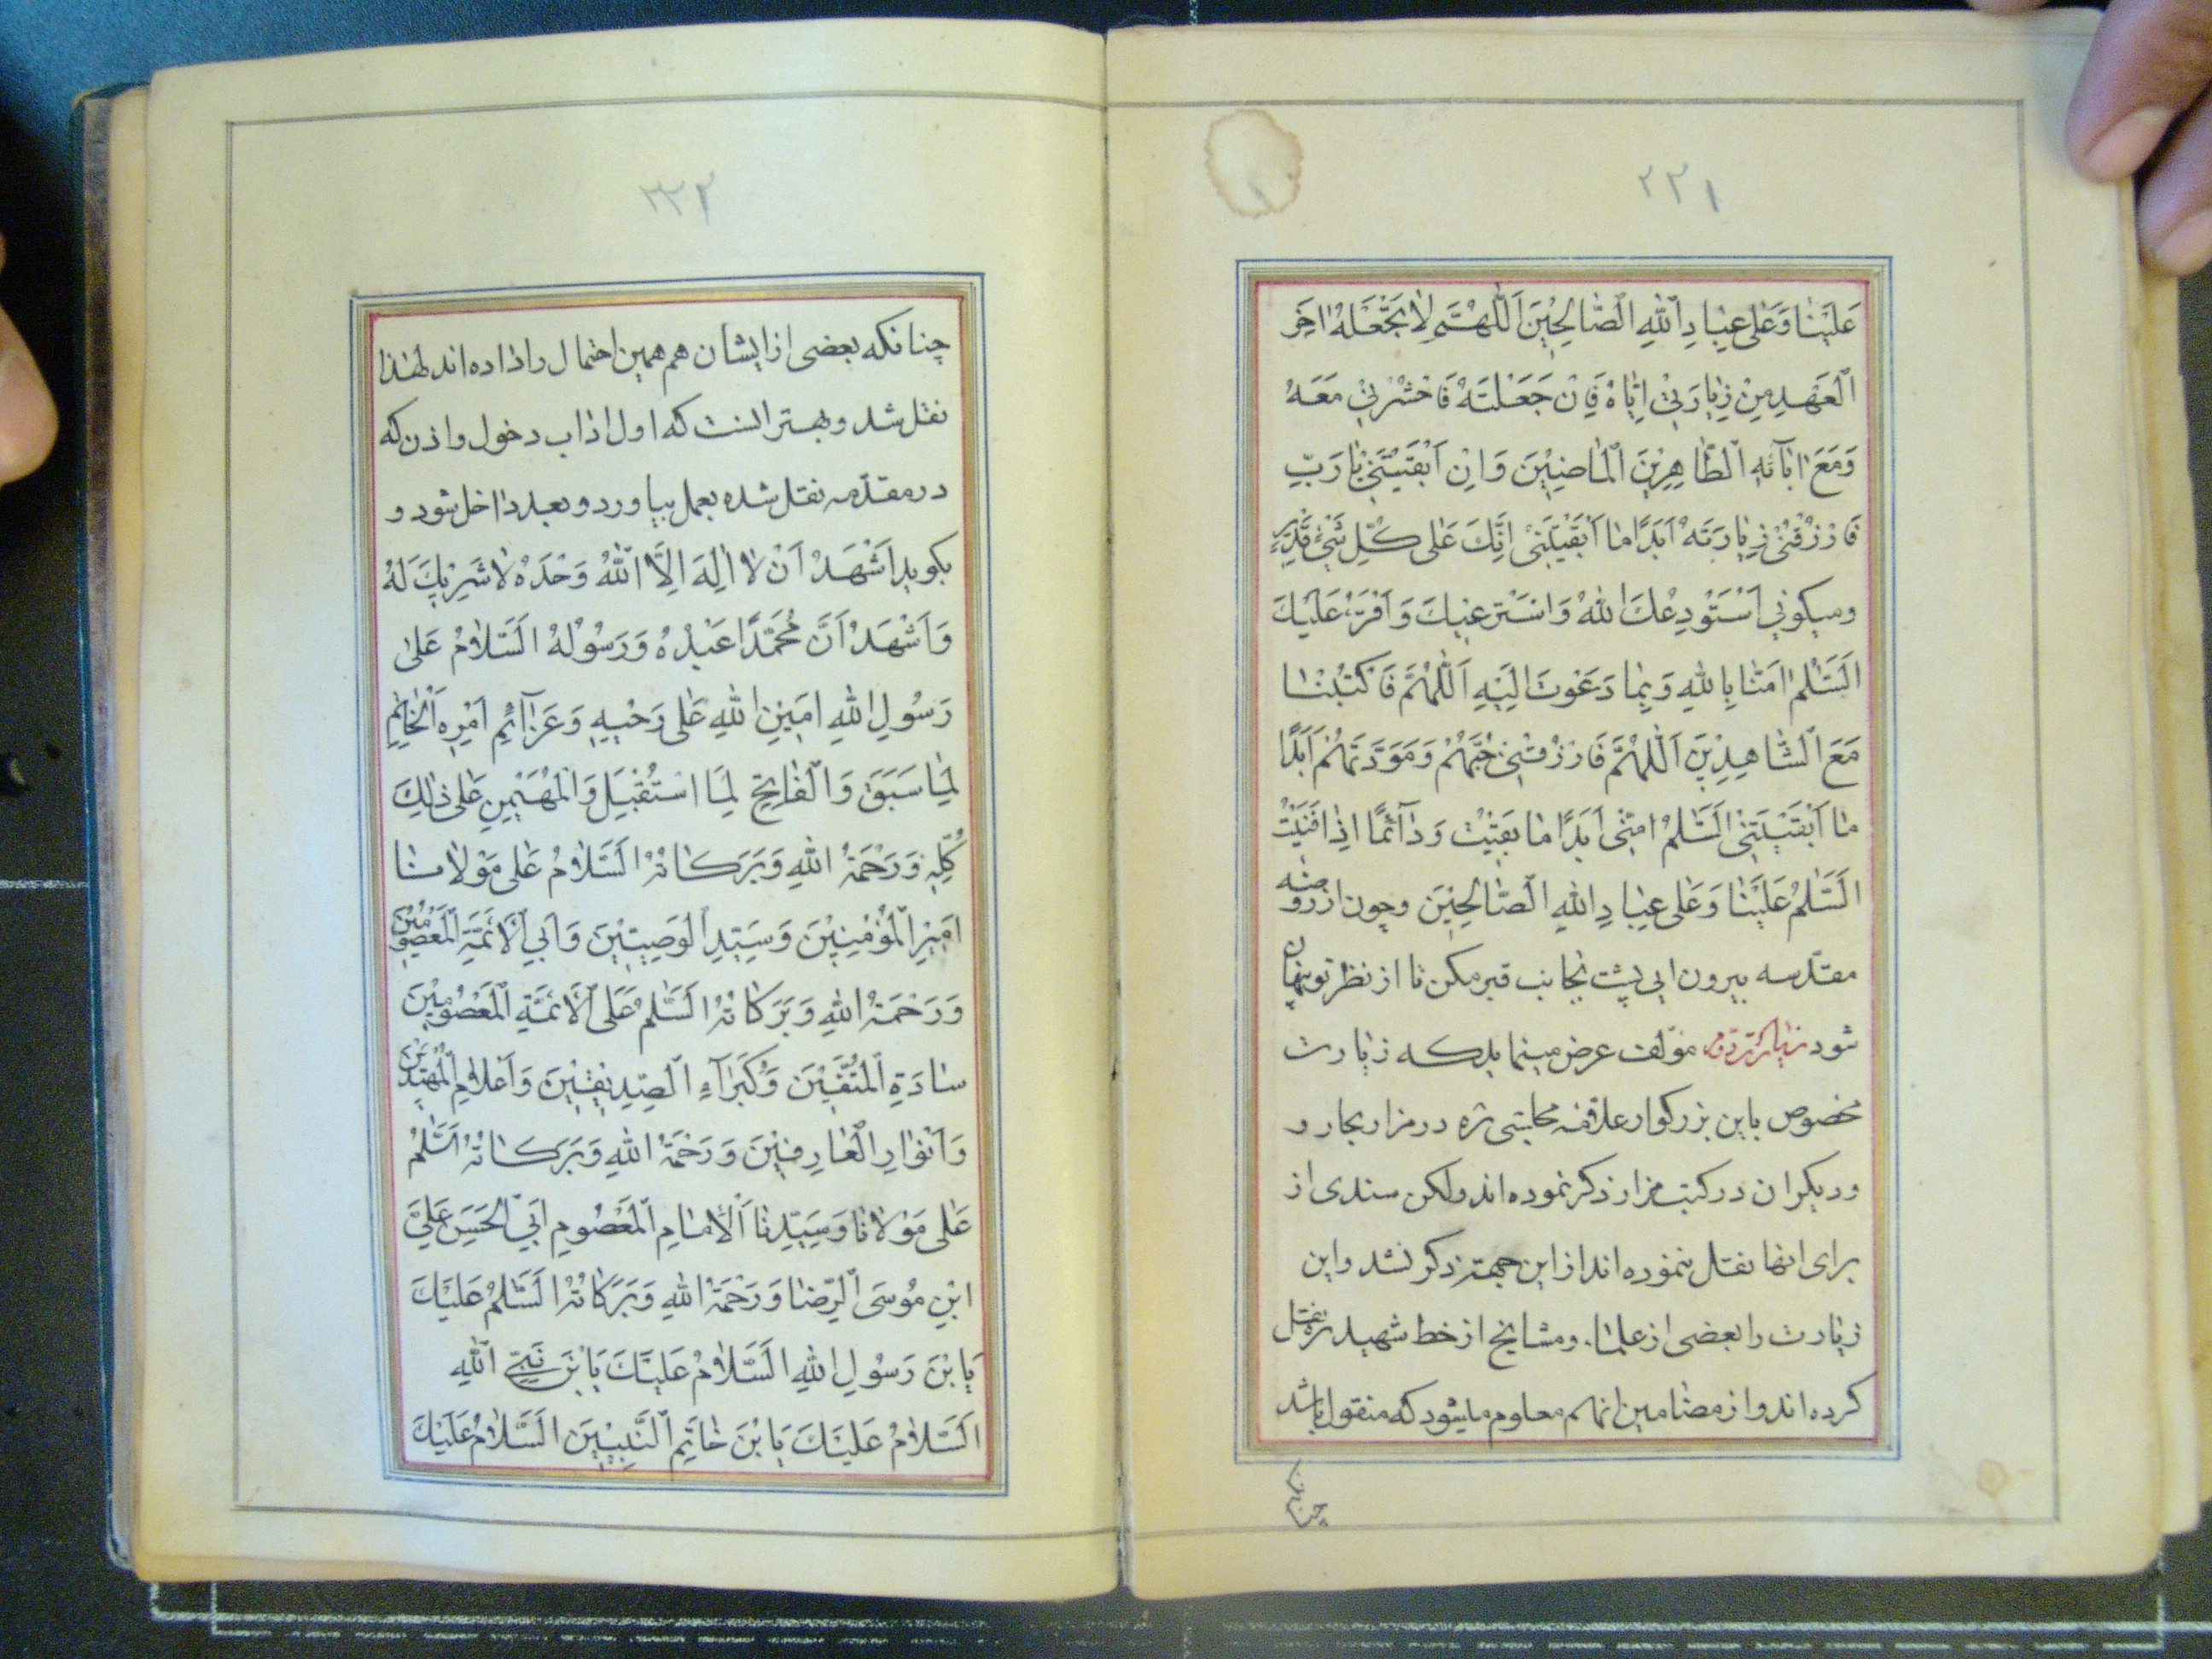 ۲۲۱
عَلَيْنَا وَعَلٰى عِبَادِ اللّٰهِ الصَّالِحِيْنَ اَللّٰهُمَّ لَا تَجْعَلْهُ اٰخِرَ
الْعَهْدِ مِنْ زِيَارَتِيْ اِيَّاهُ فَاِنْ جَعَلْتَهُ فَاحْشُرْنِيْ مَعَهُ
وَمَعَ اٰبَآئِهِ الطَّاهِرِيْنَ الْمَاضِيْنَ وَاِنْ اَبْقَيْتَنِيْ يَا رَبِّ
فَارْزُقْنِيْ زِيَارَتَهُ اَبَدًا مَا اَبْقَيْتَنِيْ اِنَّكَ عَلٰى كُلِّ شَيْءٍ قَدِيْرٌ
وميكوئي اَسْتَوْدِعُكَ اللّٰهُ وَاَسْتَرْعِيْكَ وَاَقْرَءُ عَلَيْكَ
السَّلٰمُ اٰمَنَّا بِاللّٰهِ وَبِمَا دَعَوْتَ اِلَيْهِ اَللّٰهُمَّ فَاكْتُبْنَا
مَعَ الشَّاهِدِيْنَ اَللّٰهُمَّ فَارْزُقْنِيْ حُبَّهُمْ وَمَوَدَّتَهُمْ اَبَدًا
مَا اَبْقَيْتَنِيْ اَلسَّلٰمُ مِنِّيْ اَبَدًا مَا بَقِيْتُ وَدَآئِمًا اِذَا فَنَيْتُ
اَلسَّلٰمُ عَلَيْنَا وَعَلٰى عِبَادِ اللّٰهِ الصَّالِحِيْنَ وچون از روضه
مقدّسه بيرون ايي پشت بجانب قبر مكن تا از نظر تو پنهان
شود زيارت دوم مؤلف عرض مينمايد كه زيارت
مخصوص باين بزركوار علامه مجلسى ره در مزار بحار و
وديكران در كتب مزار ذكر نموده اند ولكن سندى از
براى انها نقل ننموده اند از اين جهة ذكر نشد واين
زيارت را بعضى از علماء ومشايخ از خط شهيد ره نقل
كرده اند واز مضامين انهم معلوم ميشود كه منقول باشد
چنانكه
۲۲۲
چنانكه بعضى از ايشان هم همين احتمال را داده اند لهذا
نقل شد وبهتر انست كه اول اداب دخول واذن كه
در مقدّمه نقل شده بعمل بياورد وبعد داخل شود و
بكويد اَشْهَدُ اَنْ لَا اِلٰهَ اِلَّا اللّٰهُ وَحْدَهُ لَا شَرِيْكَ لَهُ
وَاَشْهَدُ اَنَّ مُحَمَّدًا عَبْدُهُ وَرَسُوْلُهُ اَلسَّلَامُ عَلٰى
رَسُوْلِ اللّٰهِ اَمِيْنِ اللّٰهِ عَلٰى وَحْيِهِ وَعَزَآئِمِ اَمْرِهِ الْخَاتِمِ
لِمَا سَبَقَ وَالْفَاتِحِ لِمَا اسْتُقْبِلَ وَالْمُهَيْمِنِ عَلٰى ذٰلِكَ
كُلِّهِ وَرَحْمَةُ اللّٰهِ وَبَرَكَاتُهُ اَلسَّلَامُ عَلٰى مَوْلَانَا
اَمِيْرِ الْمُؤْمِنِيْنَ وَسَيِّدِ الْوَصِيّيْنَ وَاَبِي الْاَئِمَّةِ الْمَعْصُوْمِيْنَ
وَرَحْمَةُ اللّٰهِ وَبَرَكَاتُهُ اَلسَّلٰمُ عَلَى الْاَئِمَّةِ الْمَعْصُوْمِيْنَ
سَادَةِ الْمُتَّقِيْنَ وَكُبَرَآءِ الصِّدِّيْقِيْنَ وَاَعْلَامِ الْمُهْتَدِيْنَ
وَاَنْوَارِ الْعَارِفِيْنَ وَرَحْمَةُ اللّٰهِ وَبَرَكَاتُهُ اَلسَّلٰمُ
عَلٰى مَوْلَانَا وَسَيِّدِنَا الْاِمَامِ الْمَعْصُوْمِ اَبِي الْحَسَنِ عَلِيِّ
ابْنِ مُوْسَى الرِّضَا وَرَحْمَةُ اللّٰهِ وَبَرَكَاتُهُ اَلسَّلٰمُ عَلَيْكَ
يَابْنَ رَسُوْلِ اللّٰهِ اَلسَّلَامُ عَلَيْكَ يَابْنَ نَبِيِّ اللّٰهِ
اَلسَّلَامُ عَلَيْكَ يَابْنَ خَاتَمِ النَّبِيّيْنَ اَلسَّلَامُ عَلَيْكَ